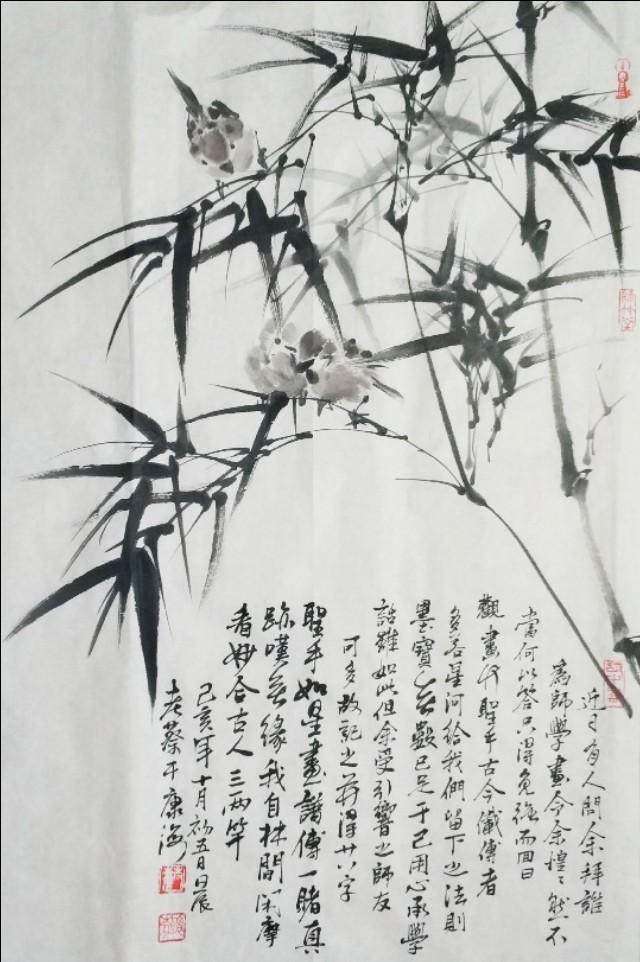 近日有人問余拜誰
為師學畫今余惶惶然不
當何以答只得勉強而回曰
觀畫代聖手古今儀傳者
多若星河給我們留下之法則
墨寶無數已足于己用心承學
話雖如此但余受引響之師友
可多故記之并得廿八字
聖手如星畫譜傳一睹真
跡嘆無緣我自林間閑摩
看妙合古人三兩竿
己亥年十月初五日辰
老蔡于康海